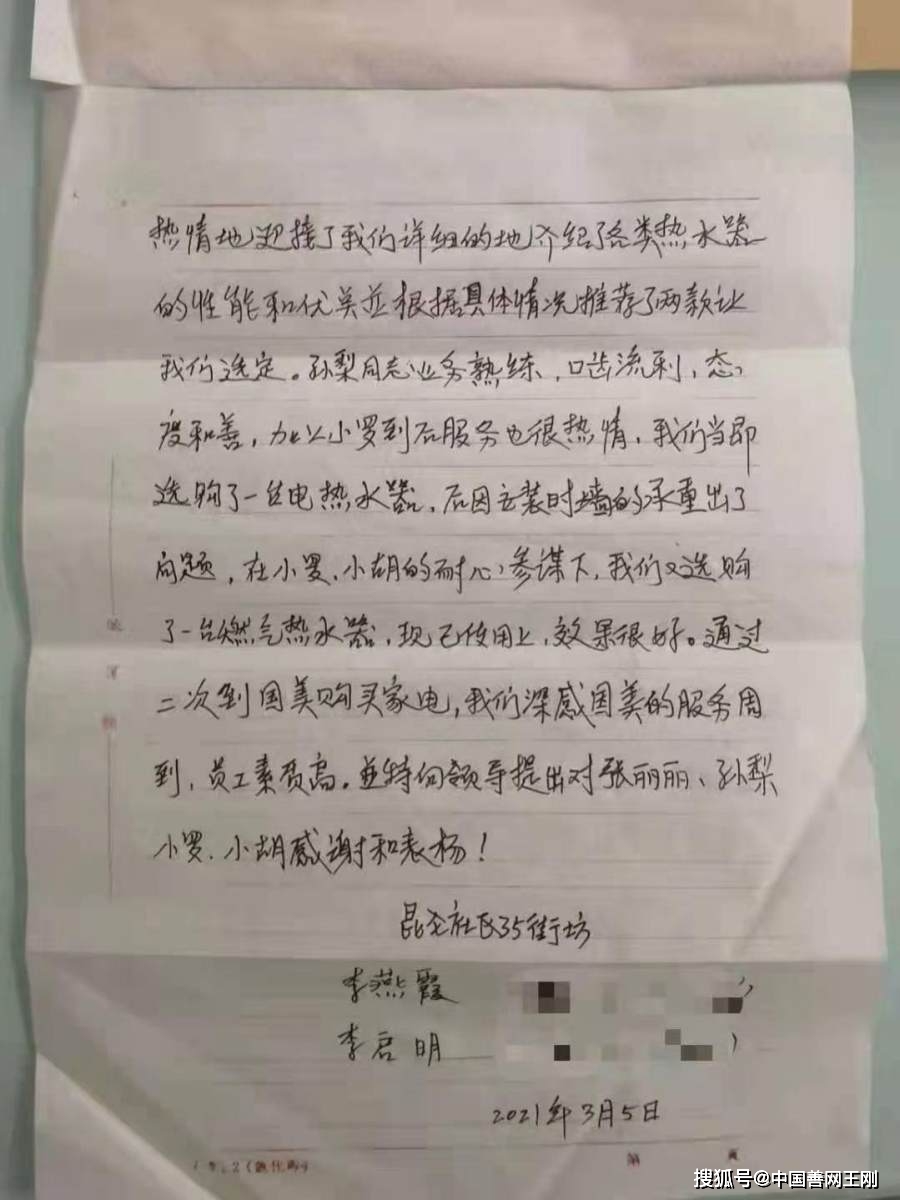 热情地迎接了我们详细的地介绍了各类热水器
的性能和优美并根据具体情况推荐了两款让
我们选定。孙梨同志业务熟练，口齿流利，态
度和善，加上小罗到后服务也很热情，我们当即
选购了一台电热水器，后因安装时墙的承重出了
问题，在小罗、小胡的耐心参谋下，我们又选购
了一台燃气热水器，现已使用上，效果很好。通过
二次到国美购买家电，我们深感国美的服务周
到，员工素质高。并特向领导提出对张丽丽、孙梨
小罗、小胡感谢和表杨！
昆仑社区35街坊
李燕霞
李启明
2021年3月5日
第 页
搜狐号@中国善网王刚